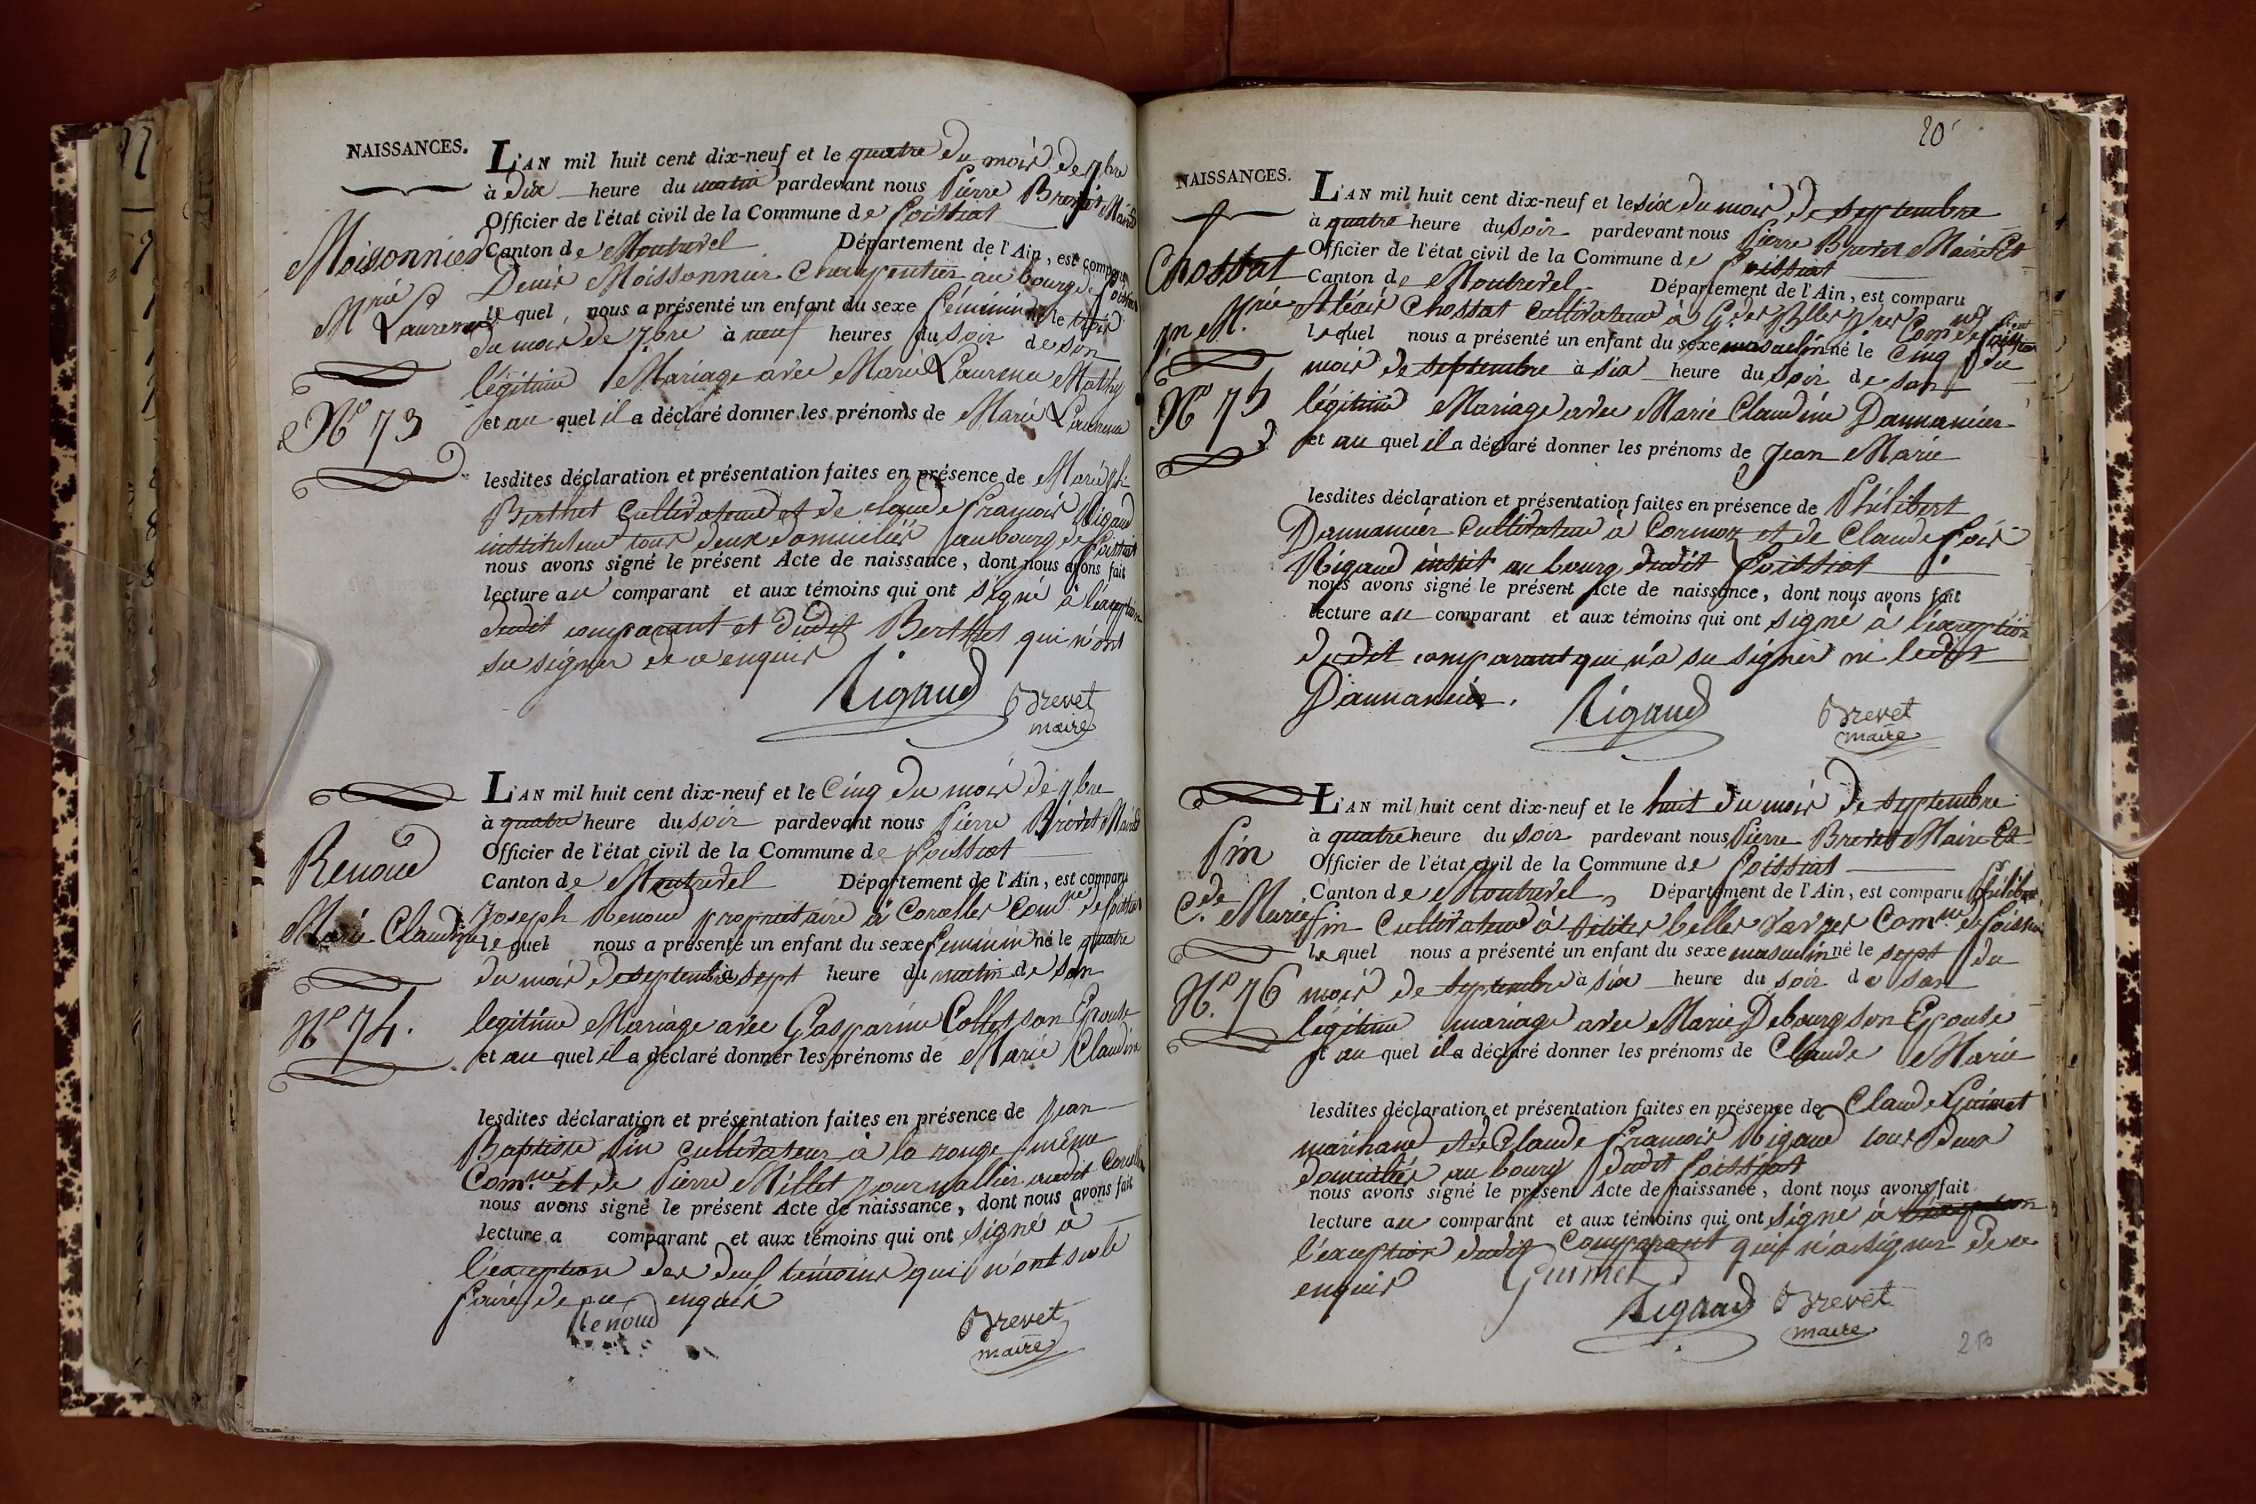 NAISSANCES.
L'AN mil huit cent dix-neuf et le quatre du mois de 7bre
à dix heure du matin pardevant nous Pierre Brevet Maire
Officier de l'état civil de la Commune de Foissiat
Canton de Montrevel Département de l'Ain, est comparu
Moissonnier
Denis Moissonnier charpentier au bourg de Foissiat
Mrie Laurence
le quel, nous a présenté un enfant du sexe féminin né le trois
du mois de 7bre à neuf heures du soir de son
légitime Mariage avec Marie Laurence Mathy
et au quel il a déclaré donner les prénoms de Marie Laurence
N° 73
lesdites déclaration et présentation faites en présence de Marie
Berthet Cultivateur et de claude françois Rigaud
instituteur tous deux domiciliés au bourg de Foissiat
nous avons signé le présent Acte de naissance, dont nous avons fait
lecture au comparant et aux témoins qui ont signé à l'exception
dudit comparant et dudit Berthet qui n'ont
su signer de ce enquis
Rigaud Brevet
maire
L'AN mil huit cent dix-neuf et le Cinq du mois de 7bre
à quatre heure du soir pardevant nous Pierre Brevet Maire
Officier de l'état civil de la Commune de foissiat
Canton de Montrevel Département de l'Ain, est comparu
Renoud
Joseph Renoud propriétaire à Corcelles Comne de foissiat
Marie Claudine
le quel nous a présenté un enfant du sexe féminin né le quatre
du mois de septembre à sept heure du matin de son
légitime Mariage avec Gasparine Collet son Epouse
et au quel il a déclaré donner les prénoms de Marie Claudine
N° 74.
lesdites déclaration et présentation faites en présence de Jean
Baptiste Pin cultivateur à la rouge même
Comne et de Pierre Millet journallier audit Corcelles
nous avons signé le présent Acte de naissance, dont nous avons fait
lecture a comparant et aux témoins qui ont signé à
l'exception des deux témoins qui n'ont su le
faire de ce enquis
Renoud Brevet
maire
20
NAISSANCES.
L'AN mil huit cent dix-neuf et le six du mois de septembre
à quatre heure du soir pardevant nous Pierre Brevet Maire Et
Officier de l'état civil de la Commune de foissiat
Canton de Montrevel Département de l'Ain, est comparu
Chossat
Chossat Cultivateur à Comne de foissiat
Jn Mrie
lequel nous a présenté un enfant du sexe masculin né le Cinq du
mois de septembre à six heure du soir de son
légitime Mariage avec Marie Claudine Dannancier
et au quel il a déclaré donner les prénoms de Jean Marie
N° 75
lesdites déclaration et présentation faites en présence de Philibert
Dannancier cultivateur à Cormoz et de Claude fçois
Rigaud instit au bourg dudit foissiat
nous avons signé le présent Acte de naissance, dont nous avons fait
lecture au comparant et aux témoins qui ont signé à l'exception
dudit comparant qui n'a su signer ni ledit
Dannancier.
Rigaud Brevet
maire
L'AN mil huit cent dix-neuf et le huit du mois de septembre
à quatre heure du soir pardevant nous Pierre Brevet Maire Et
Officier de l'état civil de la Commune de foissiat
Canton de Montrevel Département de l'Ain, est comparu Philibert
Pin
Cde Marie
Pin Cultivateur à petites belles Vavres Comne de foissiat
le quel nous a présenté un enfant du sexe masculin né le sept du
mois de septembre à six heure du soir de son
légitime mariage avec Marie Debourg son Epouse
et au quel il a déclaré donner les prénoms de Claude Marie
N° 76
lesdites déclaration et présentation faites en présence de Claude Guimet
marchand et de Claude françois Rigaud tous deux
domiciliés au bourg dudit foissiat
nous avons signé le présent Acte de naissance, dont nous avons fait
lecture au comparant et aux témoins qui ont signé à
l'exception dudit Comparant qui n'a signer de ce
enquis
Guimet
Rigaud Brevet
maire